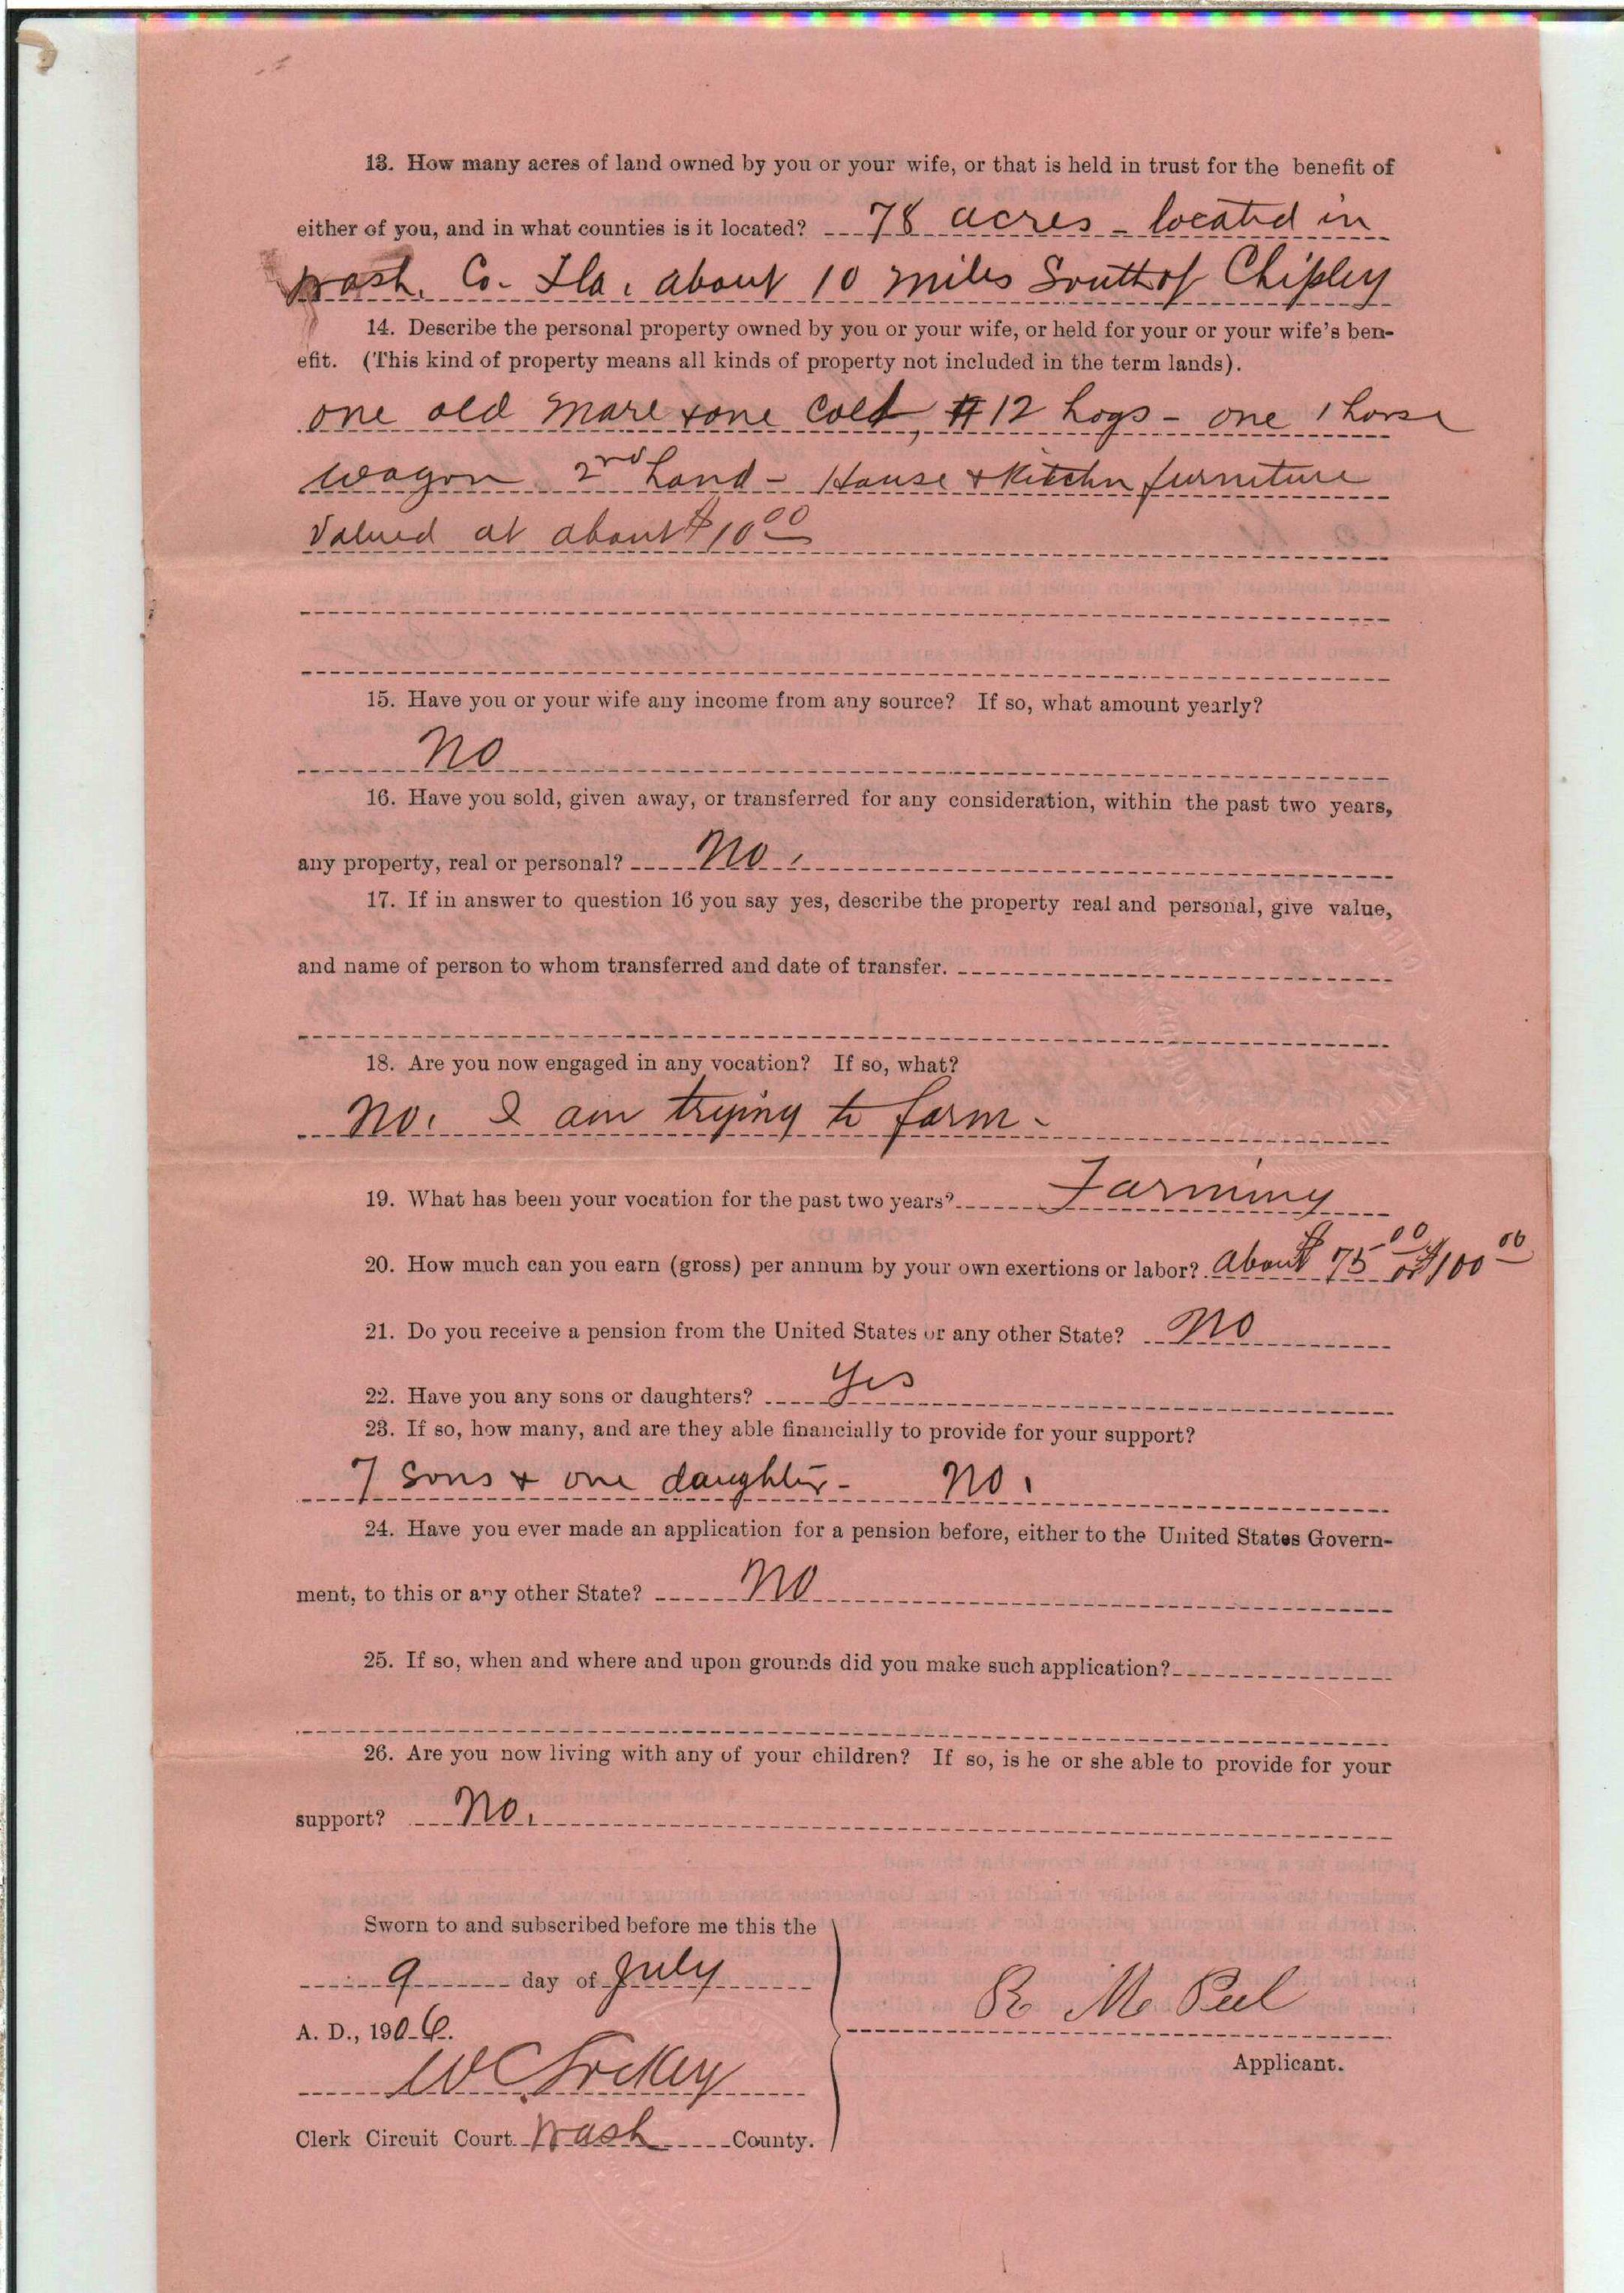 13. How many acres of land owned by you or your wife, or that is held in trust for the benefit of
either of you, and in what counties is it located? 78 acres - located in
Wash. Co. Fla. about 10 miles South of Chipley
14. Describe the personal property owned by you or your wife, or held for your or your wife's ben-
efit. (This kind of property means all kinds of property not included in the term lands).
one old mare & one colt, 12 hogs - one 1 horse
wagon 2nd hand - House & Kitchn furniture
Valued at about $10 00
15. Have you or your wife any income from any source? If so, what amount yearly?
No
16. Have you sold, given away, or transferred for any consideration, within the past two years,
any property, real or personal? No.
17. If in answer to question 16 you say yes, describe the property real and personal, give value,
and name of person to whom transferred and date of transfer.
18. Are you now engaged in any vocation? If so, what?
No. I am trying to farm -
19. What has been your vocation for the past two years? Farming
20. How much can you earn (gross) per annum by your own exertions or labor? About $75 00 or $100 00
21. Do you receive a pension from the United States or any other State? No
22. Have you any sons or daughters? Yes
23. If so, how many, and are they able financially to provide for your support?
7 sons & one daughter - No.
24. Have you ever made an application for a pension before, either to the United States Govern-
ment, to this or any other State? No
25. If so, when and where and upon grounds did you make such application?
26. Are you now living with any of your children? If so, is he or she able to provide for your
support? No.
Sworn to and subscribed before me this the
9 day of July
A. D., 1906.
R Mc Peel
Applicant.
W C Lockey
Clerk Circuit Court Wash County.